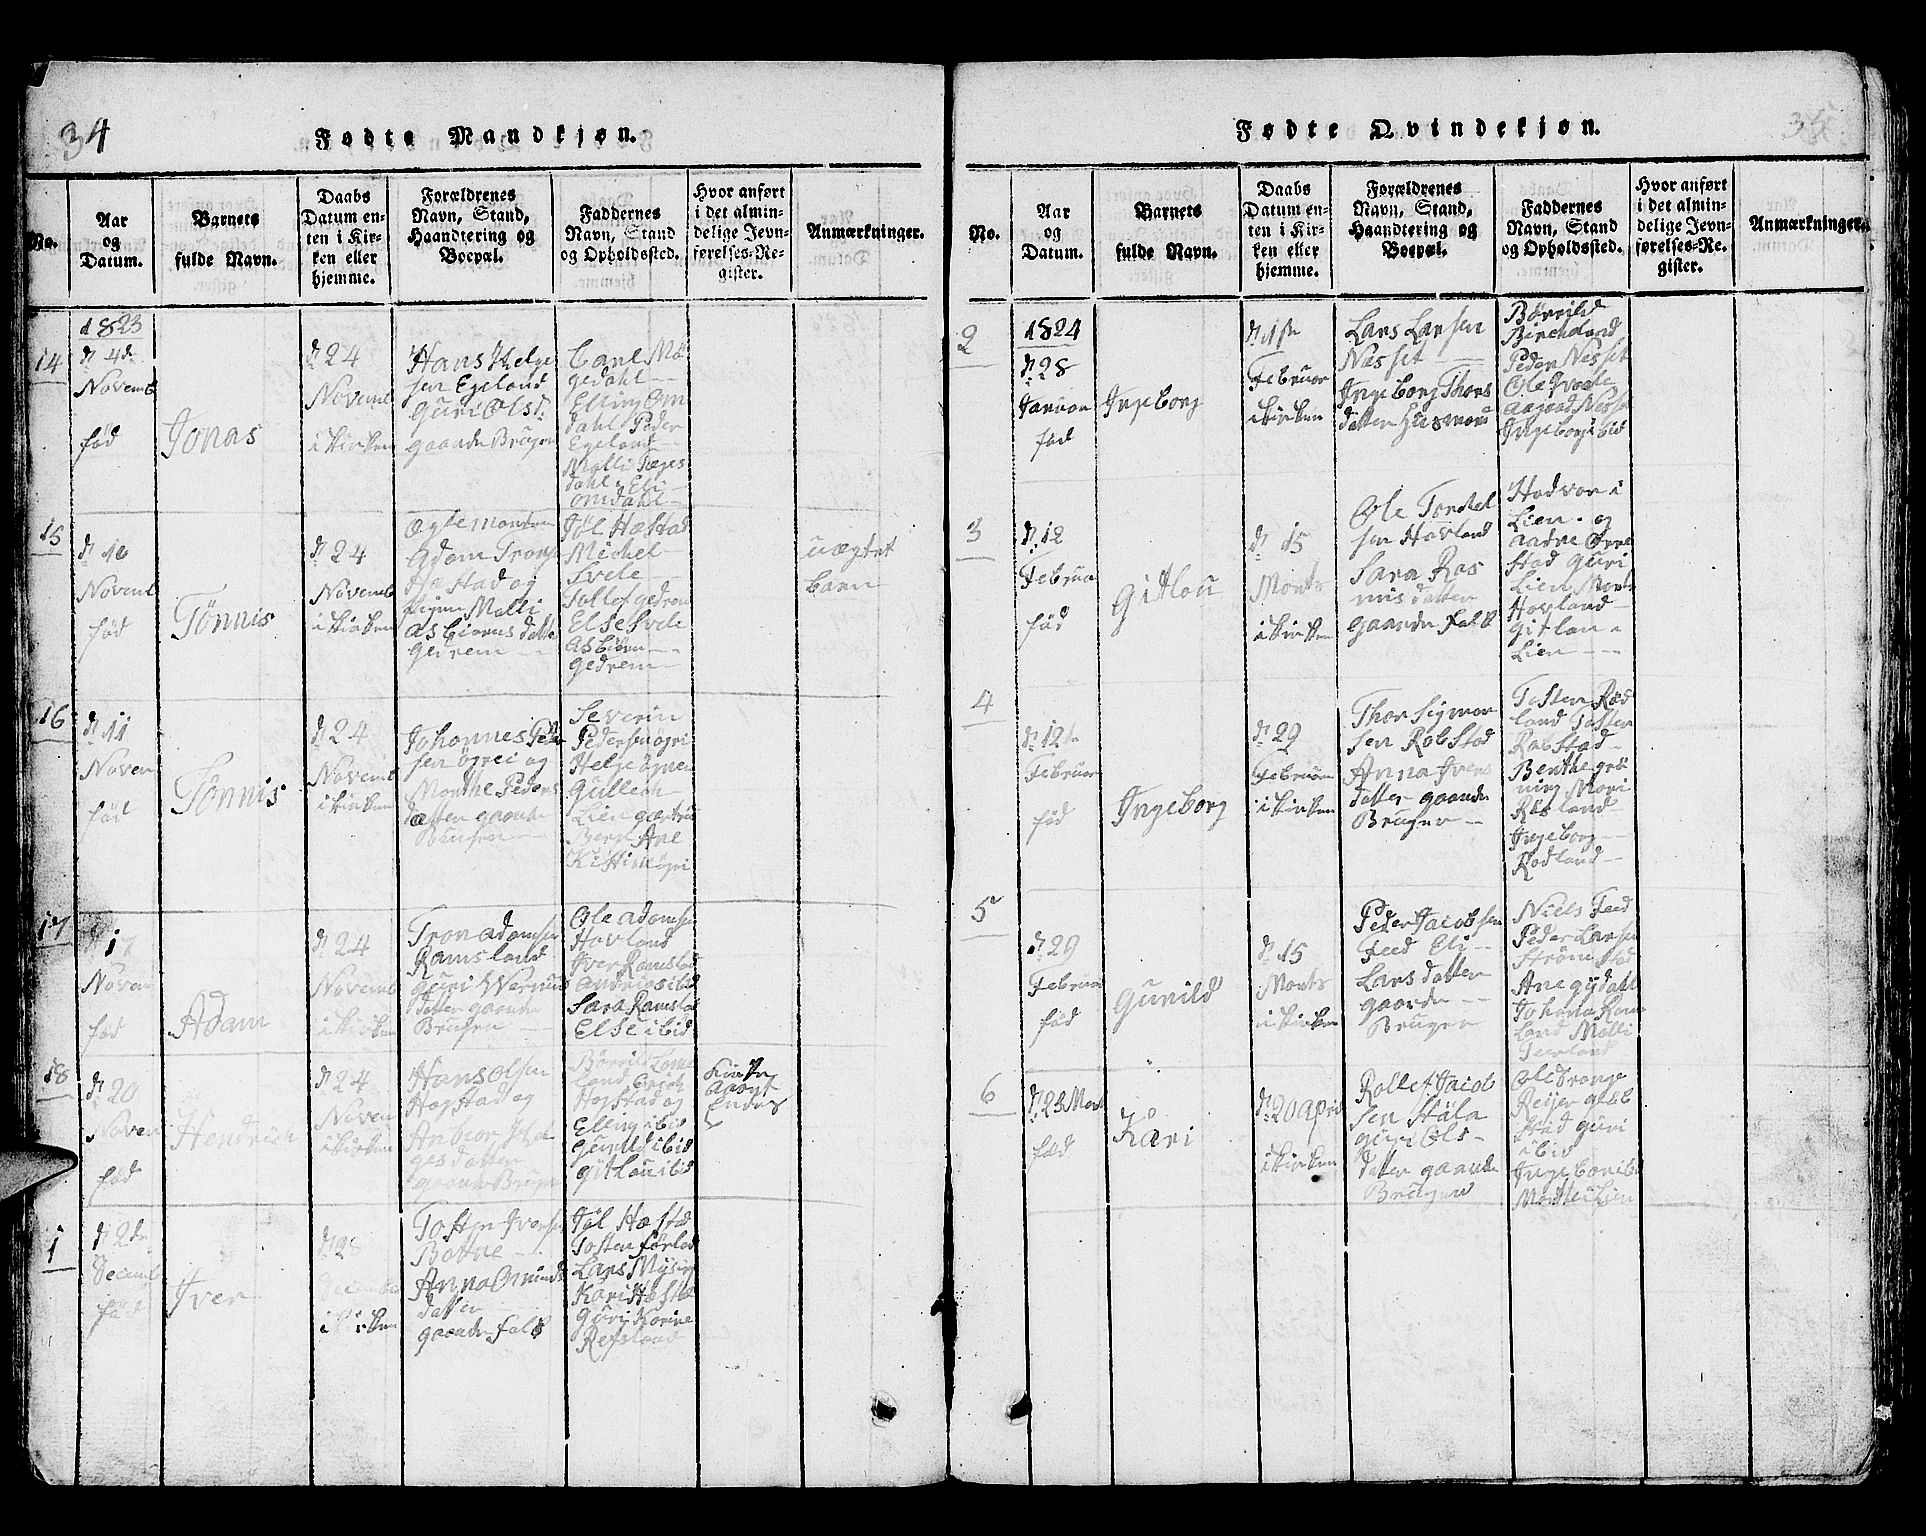 34
Fødte Mandkjøn.
No.
Aar
og
Datum.
Barnets
fulde Navn.
Daabs
Datum en-
ten i Kir-
ken eller
hjemme.
Forældrenes
Navn, Stand,
Haandtering og
Boepæl.
Faddernes
Navn, Stand
og Opholdssted.
Hvor anført
i det almin-
delige Jevn-
førelses-Re-
gister.
Anmærkninger.
14
1823
d: 4de
Novemb
fød
Jonas
d: 24
Novemb
i Kirken
Hans Helge
sen Egeland
Guri Olsd:
gaarde Bruger
Carl Mø
gedahl
Elling Om
dahl Peder
Egeland
Malli Tæges
dahl Eli
Omdahl
15
d: 10
Novemb
fød
Tönnis
d: 24
Novemb
i Kirken
Adam Trons
Hæstad og
Pigen Malli
Asbiorns datte
Gedrem
Jöl Hæstad
Michel
Svele
Tollef gedrem
Else Svele
Asbiörn
Gedrem
uægtet
barn
16
d: 11
Novem
fød
Tönnis
d: 24
Novemb
i Kirken
Johannes Peder
sen ögrei og
Marthe Peders
datter gaarde
Bruger
Severin
Pedersen ögri
Helge ögrei
Gullech
Lien gærtru
Berge Ane
Kistine ögri
17
d: 17
Novem
fød
Adam
d: 24
Novemb
i Kirken
Tron adamsen
Ramsland
Guri Werner
datter gaarde
Bruger
Ole adamsen
Hovland
Iver Ramsland
Andrias ibid
Sara Ramsla
Else ibid
18
d: 20
Novem
fød
Hendrich
d: 24
Novem
i Kirken
Hans olsen
Hogstad og
Anbior Hel
ges datter
gaarde Bruger
Hogstad og
Elling ibid
Gunild ibid
Gitlou ibid
Kirke
Aaret
Endes
1
d: 2den
Decemb
fød
Iver
d: 28
December
i Kirken
Tosten Iversen
Botne
Anna Omunds
datter
gaarde folk
Jöl Hæstad
Tosten förland
Lars Mysing
Kari Hæstad
Guri Karine
Refsland
35
Fødte Qvindekjøn.
No.
Aar
og
Datum.
Barnets
fulde Navn.
Daabs
Datum en-
ten i Kir-
ken eller
hjemme.
Forældrenes
Navn, Stand,
Haandtering og
Boepæl.
Faddernes
Navn, Stand
og Opholdssted.
Hvor anført
i det almin-
delige Jevn-
førelses-Re-
gister.
Anmærkninger.
2
1824
d: 28
Januar
fød
Ingeborg
d: 1ste
Februar
i Kirken
Lars Larsen
Nesset
Ingeborg Thors
datter Husman
Börrild
Bircheland
Peder Nesset
Ole Qvale
Aagaad Nesse
Ingeborg ibid
3
d: 12
Februar
fød
Gitlou
d: 15
Marts
i Kirken
Ole Torkel
sen Hovland
Sara Ras
mis datter
gaarde Folk
Hadvor i
Lien og
Aadne Örre
stad Guri
Lien Marte
Hovland
Gitlau
Lien
4
d: 12te
Februar
fød
Ingeborg
d: 29
Februar
i Kirken
Thor Sigvor
sen Robstad
Anna Ivers
datter gaarde
Bruger
Tosten Rød
land Tosten
Robstad
Benthe grö
ning Mari
Resland
Ingeborg
Rodland
5
d: 29
Februar
fød
Gunild
d: 15
Marts
i Kirken
Peder Jacobsen
Feed Eli
Lars datter
gaarde
Bruger
Niels Feed
Peder Larsen
Strömstad
Ane gydahl
Johana Ram
land Malli
6
d: 23 Mart
fød
Kari
d: 20 April
i Kirken
Rollef Jacob
sen Stüla
Guri Ols
datter gaarde
Bruger
Ole Trange
Reijer geel
stad Guri
ibid
Ingebor ibi
Marthe Lien